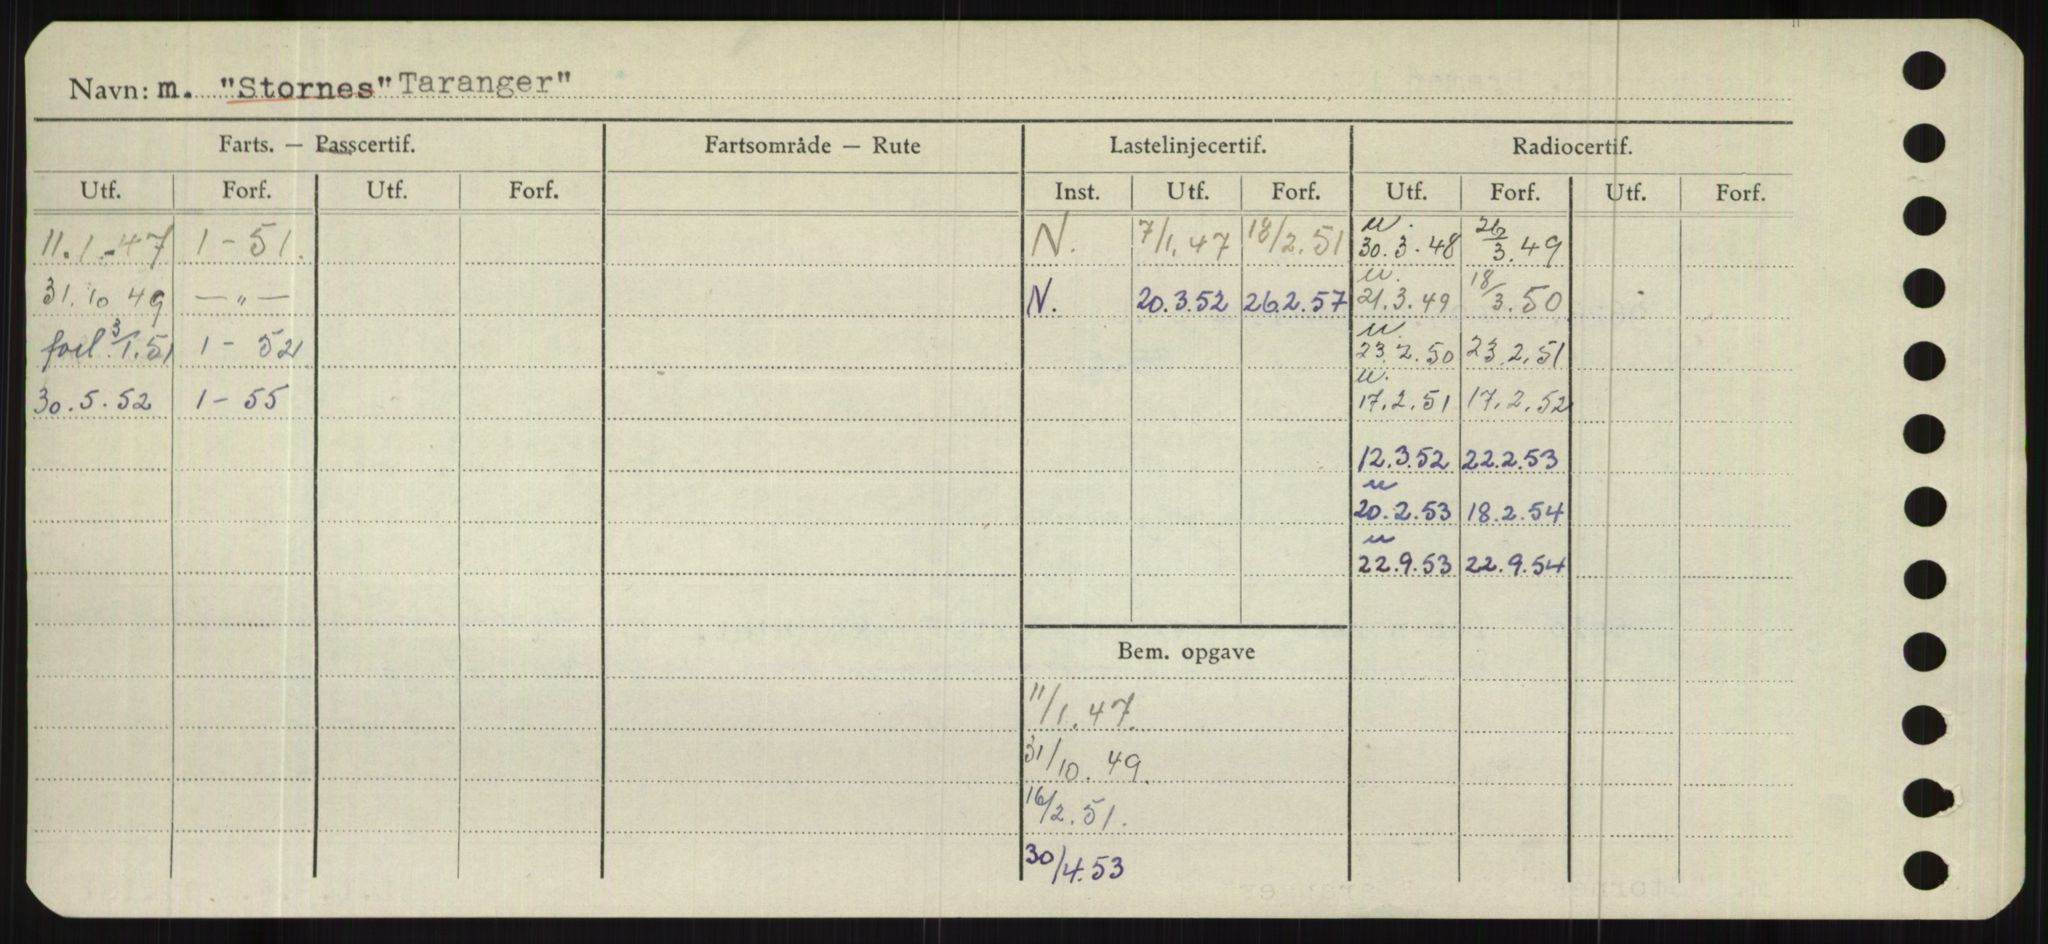 Navn: m. "Stornes" Taranger"
Farts. — Passcertif. Fartsområde — Rute Lastelinjecertif. Radiocertif.
Utf. Forf. Utf. Forf. Inst. Utf. Forf. Utf. Forf. Utf. Forf.
11.1.-47 1-51. N. 7/1.47 18/2.51 u. 30.3.48 26/3.49
31.10 49 —"— N. 20.3.52 26.2.57 u. 21.3.49 18/3.50
3/1.51 1-52 u. 23.2.50 23.2.51
30.5.52 1-55 u. 17.2.51 17.2.52
12.3.52 22.2.53
u 20.2.53 18.2.54
u 22.9.53 22.9.54
Bem. opgave
11/1.47.
31/10.49.
16/2.51.
30/4.53